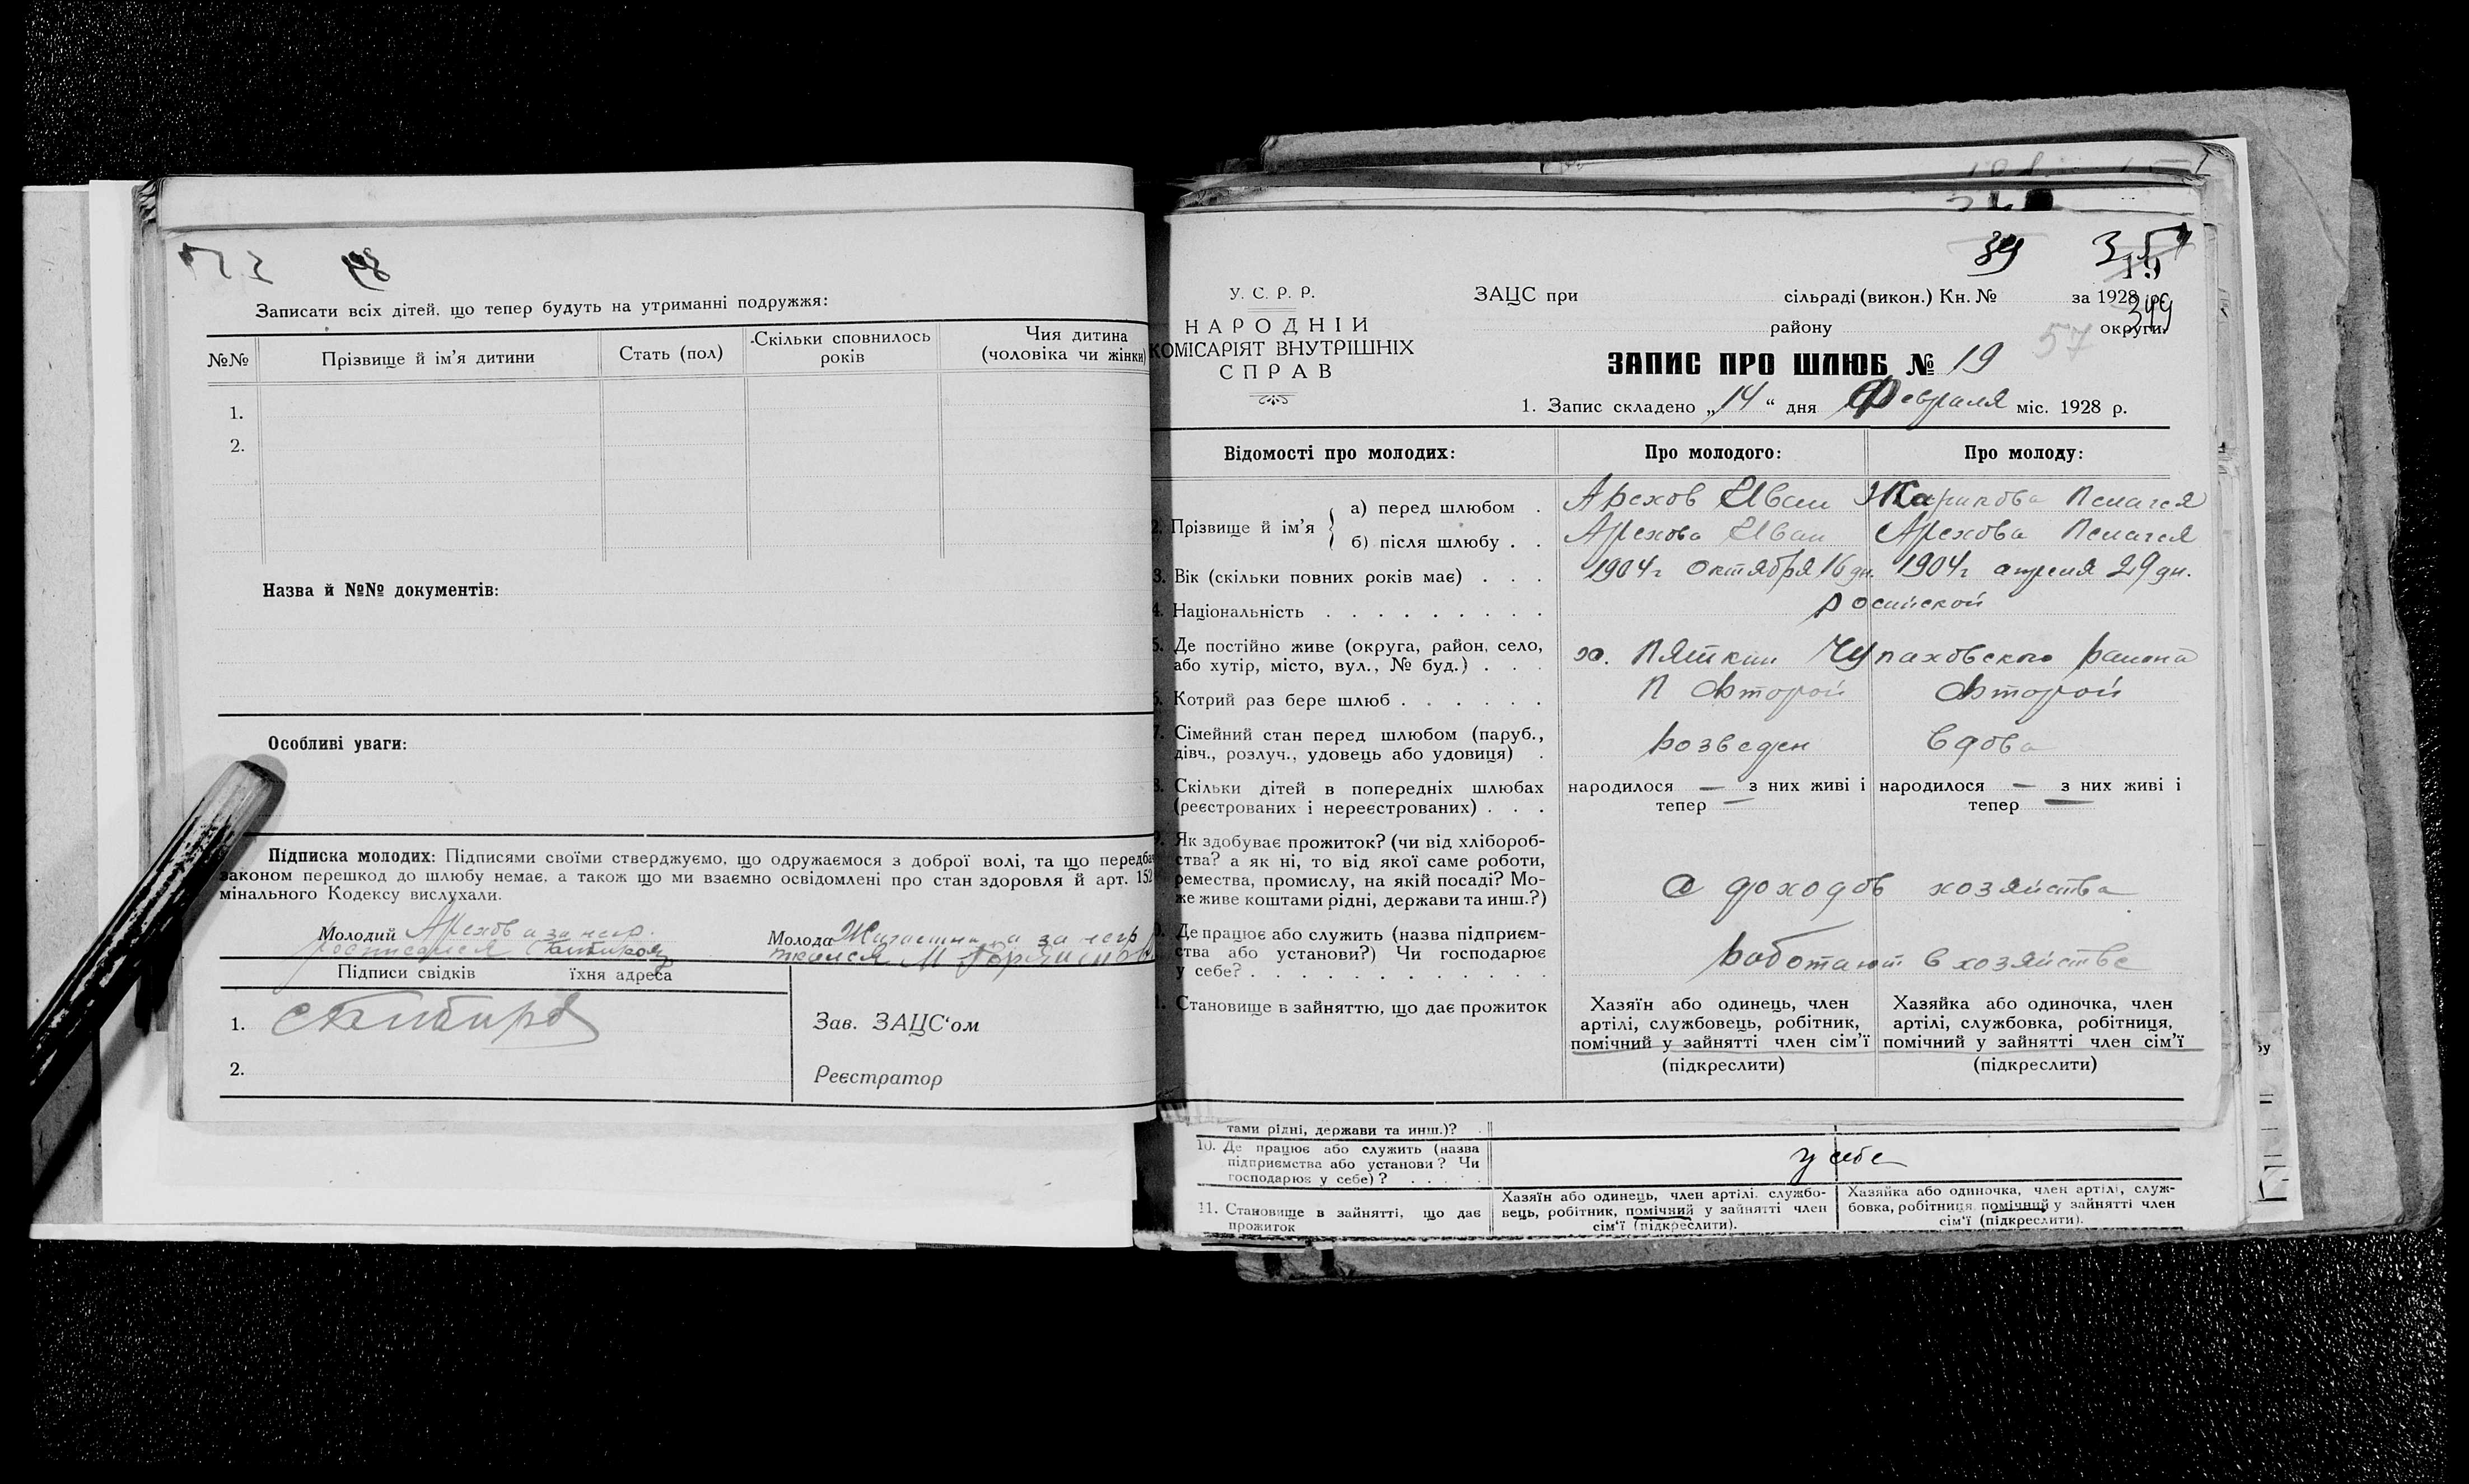 39
Записати всіх дітей, що тепер будуть на утриманні подружжя:
№№ Прізвище й ім'я дитини Стать (пол) Скільки сповнилось років Чия дитина (чоловіка чи жінки)
1.
2.
Назва й №№ документів:
Особливі уваги:
Підписка молодих: Підписями своїми стверджуємо, що одружаємося з доброї волі, та що передба
законом перешкод до шлюбу немає, а також що ми взаємно освідомлені про стан здоровля й арт. 152
мінального Кодексу вислухали.
Молодий Арехов а за негр.
росписался
Молода а за негр
Підписи свідків їхня адреса
1.
2.
Зав. ЗАЦС'ом
Реєстратор
39 35
19
У. С. Р. Р.
НАРОДНІЙ
КОМІСАРІЯТ ВНУТРІШНІХ
СПРАВ
ЗАЦС при сільраді (викон.) Кн. № за 1928 р.
349
району округи.
57
ЗАПИС ПРО ШЛЮБ № 19
1. Запис складено „14“ дня Февраля міс. 1928 р.
Відомості про молодих: Про молодого: Про молоду:
2. Прізвище й ім'я
а) перед шлюбом . Арехов Иван Пелагея
б) після шлюбу . . Арехова Иван Арехова Пелагея
3. Вік (скільки повних років має) . . . 1904г октября 16 дн. 1904г апреля 29 дн.
4. Національність . . . . . . . . . росийской
5. Де постійно живе (округа, район, село,
або хутір, місто, вул., № буд.) . . . х. Пяткин Чупаховского района
6. Котрий раз бере шлюб . . . . . . П Второй Второй
7. Сімейний стан перед шлюбом (паруб.,
дівч., розлуч., удовець або удовиця) . розведен вдова
8. Скільки дітей в попередніх шлюбах
(реєстрованих і нереєстрованих) . . .
народилося — з них живі і
тепер —
народилося — з них живі і
тепер —
9. Як здобуває прожиток? (чи від хлібороб-
ства? а як ні, то від якої саме роботи,
ремества, промислу, на якій посаді? Мо-
же живе коштами рідні, держави та инш.?)
а доходов хозяйства
Де працює або служить (назва підприєм-
ства або установи?) Чи господарює
у себе? . . . . . . . . . . . . .
работают в хозяйстве
Становище в зайняттю, що дає прожиток
Хазяїн або одинець, член
артілі, службовець, робітник,
помічний у зайнятті член сім'ї
(підкреслити)
Хазяйка або одиночка, член
артілі, службовка, робітниця,
помічний у зайнятті член сім'ї
(підкреслити)
тами рідні, держави та инш.)?
10. Де працює або служить (назва
підприємства або установи? Чи
господарює у себе)? . . . . .
у себе
11. Становище в зайнятті, що дає
прожиток
Хазяїн або одинець, член артілі, службо-
вець, робітник, помічний у зайнятті член
сім'ї (підкреслити).
Хазяйка або одиночка, член артілі, служ-
бовка, робітниця, помічний у зайнятті член
сім'ї (підкреслити).